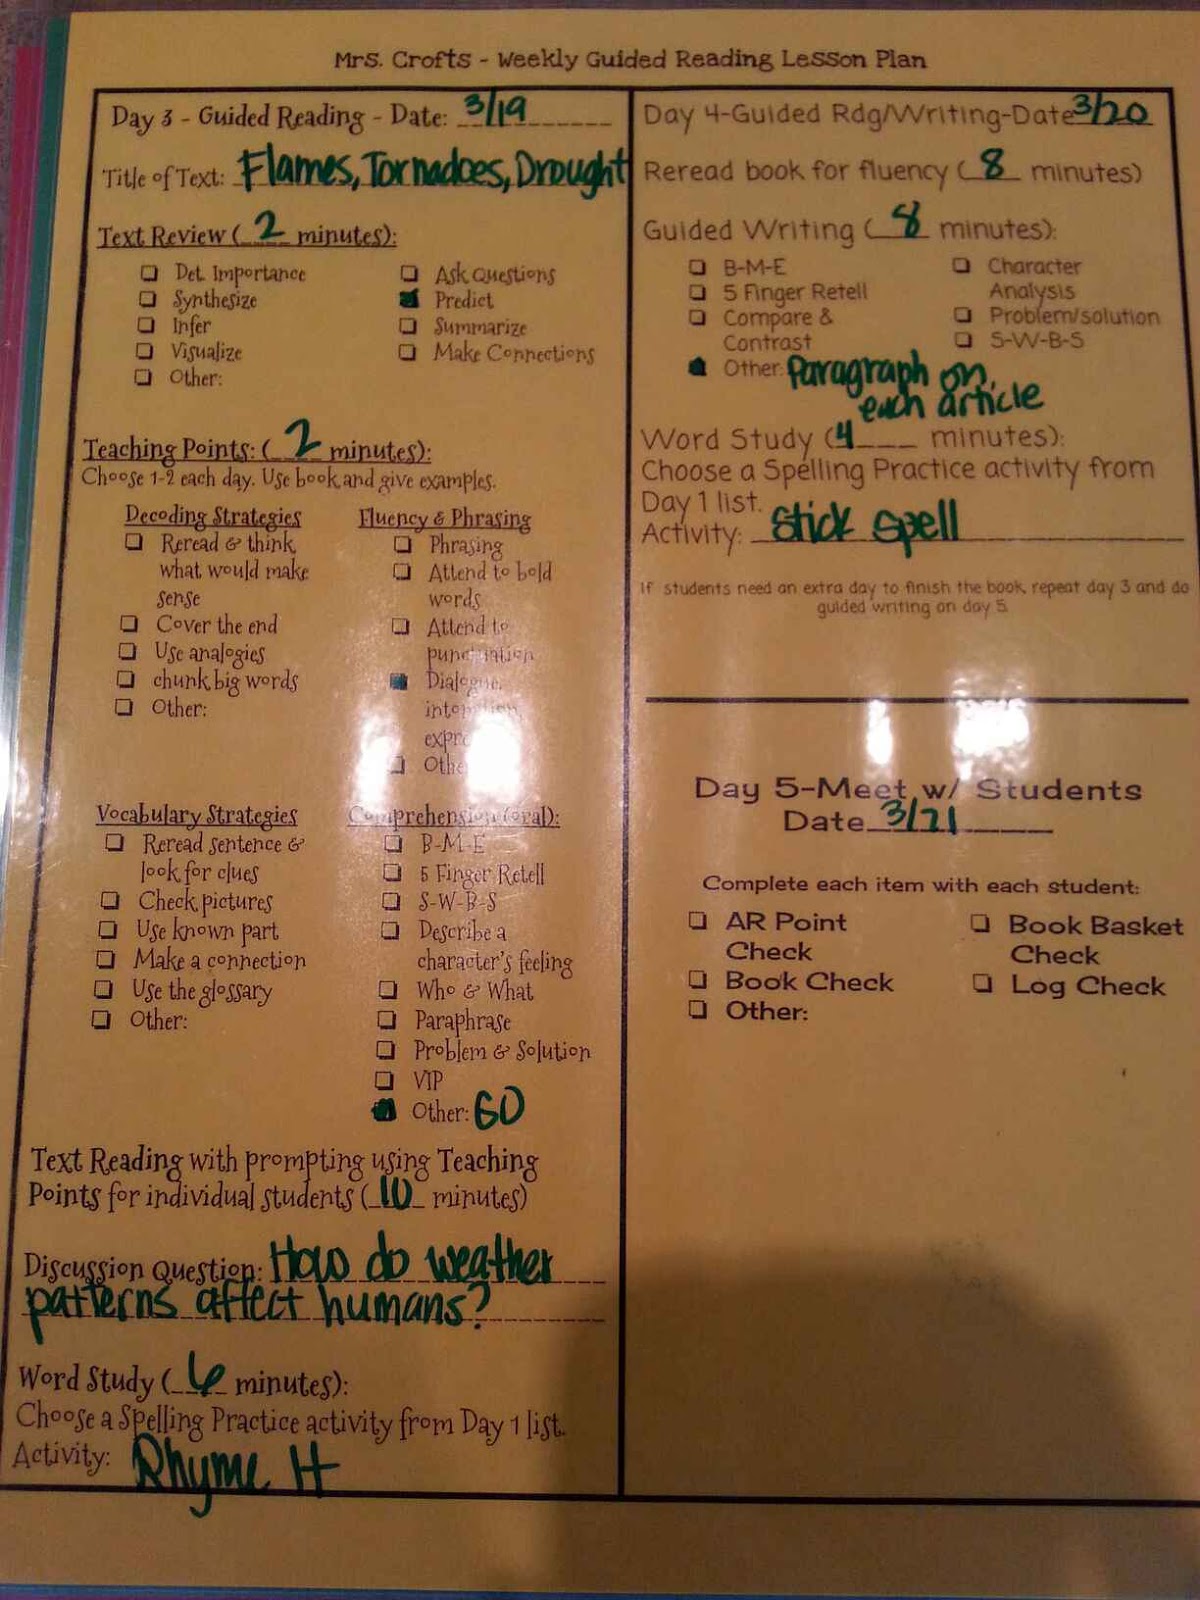 Mrs. Crofts - Weekly Guided Reading Lesson Plan
Day 3 - Guided Reading - Date: 3/19
Title of Text: Flames, Tornadoes, Drought
Text Review ( 2 minutes):
Det. Importance
Synthesize
Infer
Visualize
Other:
Ask Questions
Predict
Summarize
Make Connections
Teaching Points: ( 2 minutes):
Choose 1-2 each day. Use book and give examples.
Decoding Strategies
Reread & think
what would make
sense
Cover the end
Use analogies
chunk big words
Other:
Fluency & Phrasing
Phrasing
Attend to bold
words
Attend to
punctuation
Dialogue,
Vocabulary Strategies
Reread sentence &
look for clues
Check pictures
Use known part
Make a connection
Use the glossary
Other:
Comprehension (oral):
B-M-E
5 Finger Retell
S-W-B-S
Describe a
character's feeling
Who & What
Paraphrase
Problem & Solution
VIP
Other: GO
Text Reading with prompting using Teaching
Points for individual students ( 10 minutes)
Discussion Question: How do weather
patterns affect humans?
Word Study ( 6 minutes):
Choose a Spelling Practice activity from Day 1 list.
Activity: Rhyme It
Day 4-Guided Rdg/Writing-Date 3/20
Reread book for fluency ( 8 minutes)
Guided Writing ( 8 minutes):
B-M-E
5 Finger Retell
Compare &
Contrast
Other: Paragraph on
each article
Character
Analysis
Problem/solution
S-W-B-S
Word Study (4 minutes):
Choose a Spelling Practice activity from
Day 1 list.
Activity: Stick Spell
If students need an extra day to finish the book, repeat day 3 and do
guided writing on day 5.
Day 5-Meet w/ Students
Date 3/21
Complete each item with each student:
AR Point
Check
Book Check
Other:
Book Basket
Check
Log Check